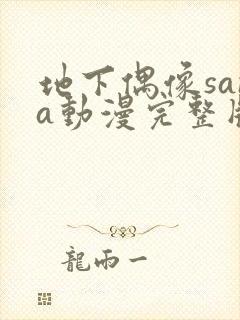 地下偶像sa
a動漫完整
龍雨一